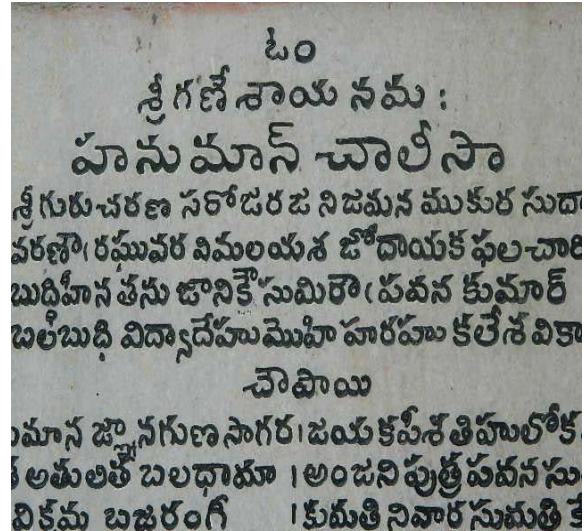 ఓం
శ్రీ గణేశాయ నమ :
హనుమాన్ చాలీసా
శ్రీ గురు చరణ సరోజరజ నిజమన ముకుర సుదా
వరణౌ రఘువర విమలయశ జోదాయక ఫల చారి
బుద్ధిహీన తను జానికై సుమిరౌ పవన కుమార్
బలబుధి విద్యాదేహు మొహి హరహు కలేశ వికా
చౌపాయి
మాన జ్ఞాన గుణ సాగర । జయ కపీశ తిహులోక
అతులిత బలధామా । అంజని పుత్ర పవన సు
విక్రమ బజరంగీ । కుమతి నివార సుమతి